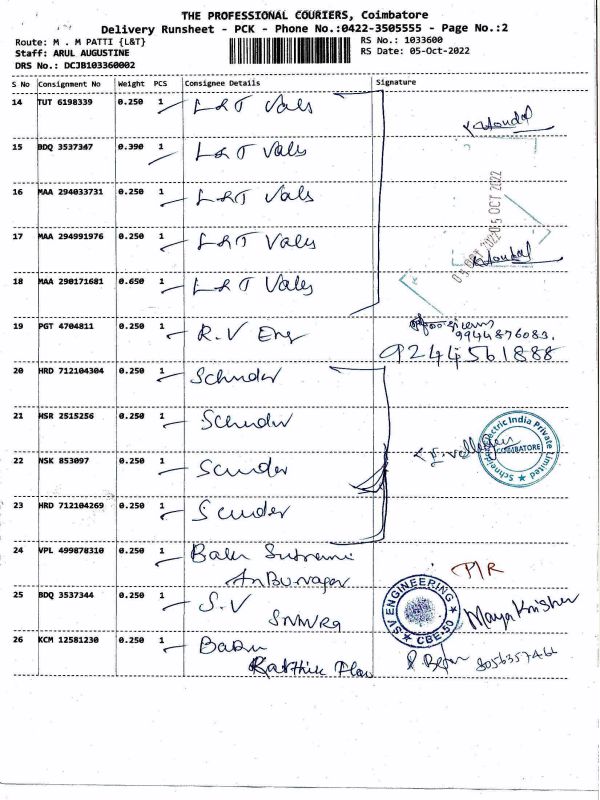 THE PROFESSIONAL COURIERS, Coimbatore
Delivery Runsheet - PCK - Phone No.:0422-3505555 - Page No.:2
Route: M . M PATTI {L&T}
RS No.: 1033600
Staff: ARUL AUGUSTINE
RS Date: 05-Oct-2022
DRS No.: DCJB103360002
S No Consignment No Weight PCS Consignee Details Signature
14 TUT 6198339 0.250 1 L&T Vals
15 BDQ 3537347 0.390 1 L&T Vals
16 MAA 294033731 0.250 1 L&T Vals
05 OCT 2022
17 MAA 294991976 0.250 1 L&T Vales
18 MAA 290171681 0.650 1 L&T Vales
19 PGT 4704811 0.250 1 R.V Eng
9944876083.
9244561888
20 HRD 712104304 0.250 1 Schnder
21 HSR 2515256 0.250 1 Scnudr
Schneider Electric India Private Limited
COIMBATORE
22 NSK 853097 0.250 1 Scuder
23 HRD 712104269 0.250 1 Scuder
24 VPL 499878310 0.250 1 Balu
AnBunager
25 BDQ 3537344 0.250 1 S.V
SV ENGINEERING
CBE-50
26 KCM 12581230 0.250 1 Babu
8056357466